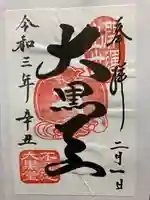 奉拝
二月一日
大黒天
令和三年辛丑
大黒堂